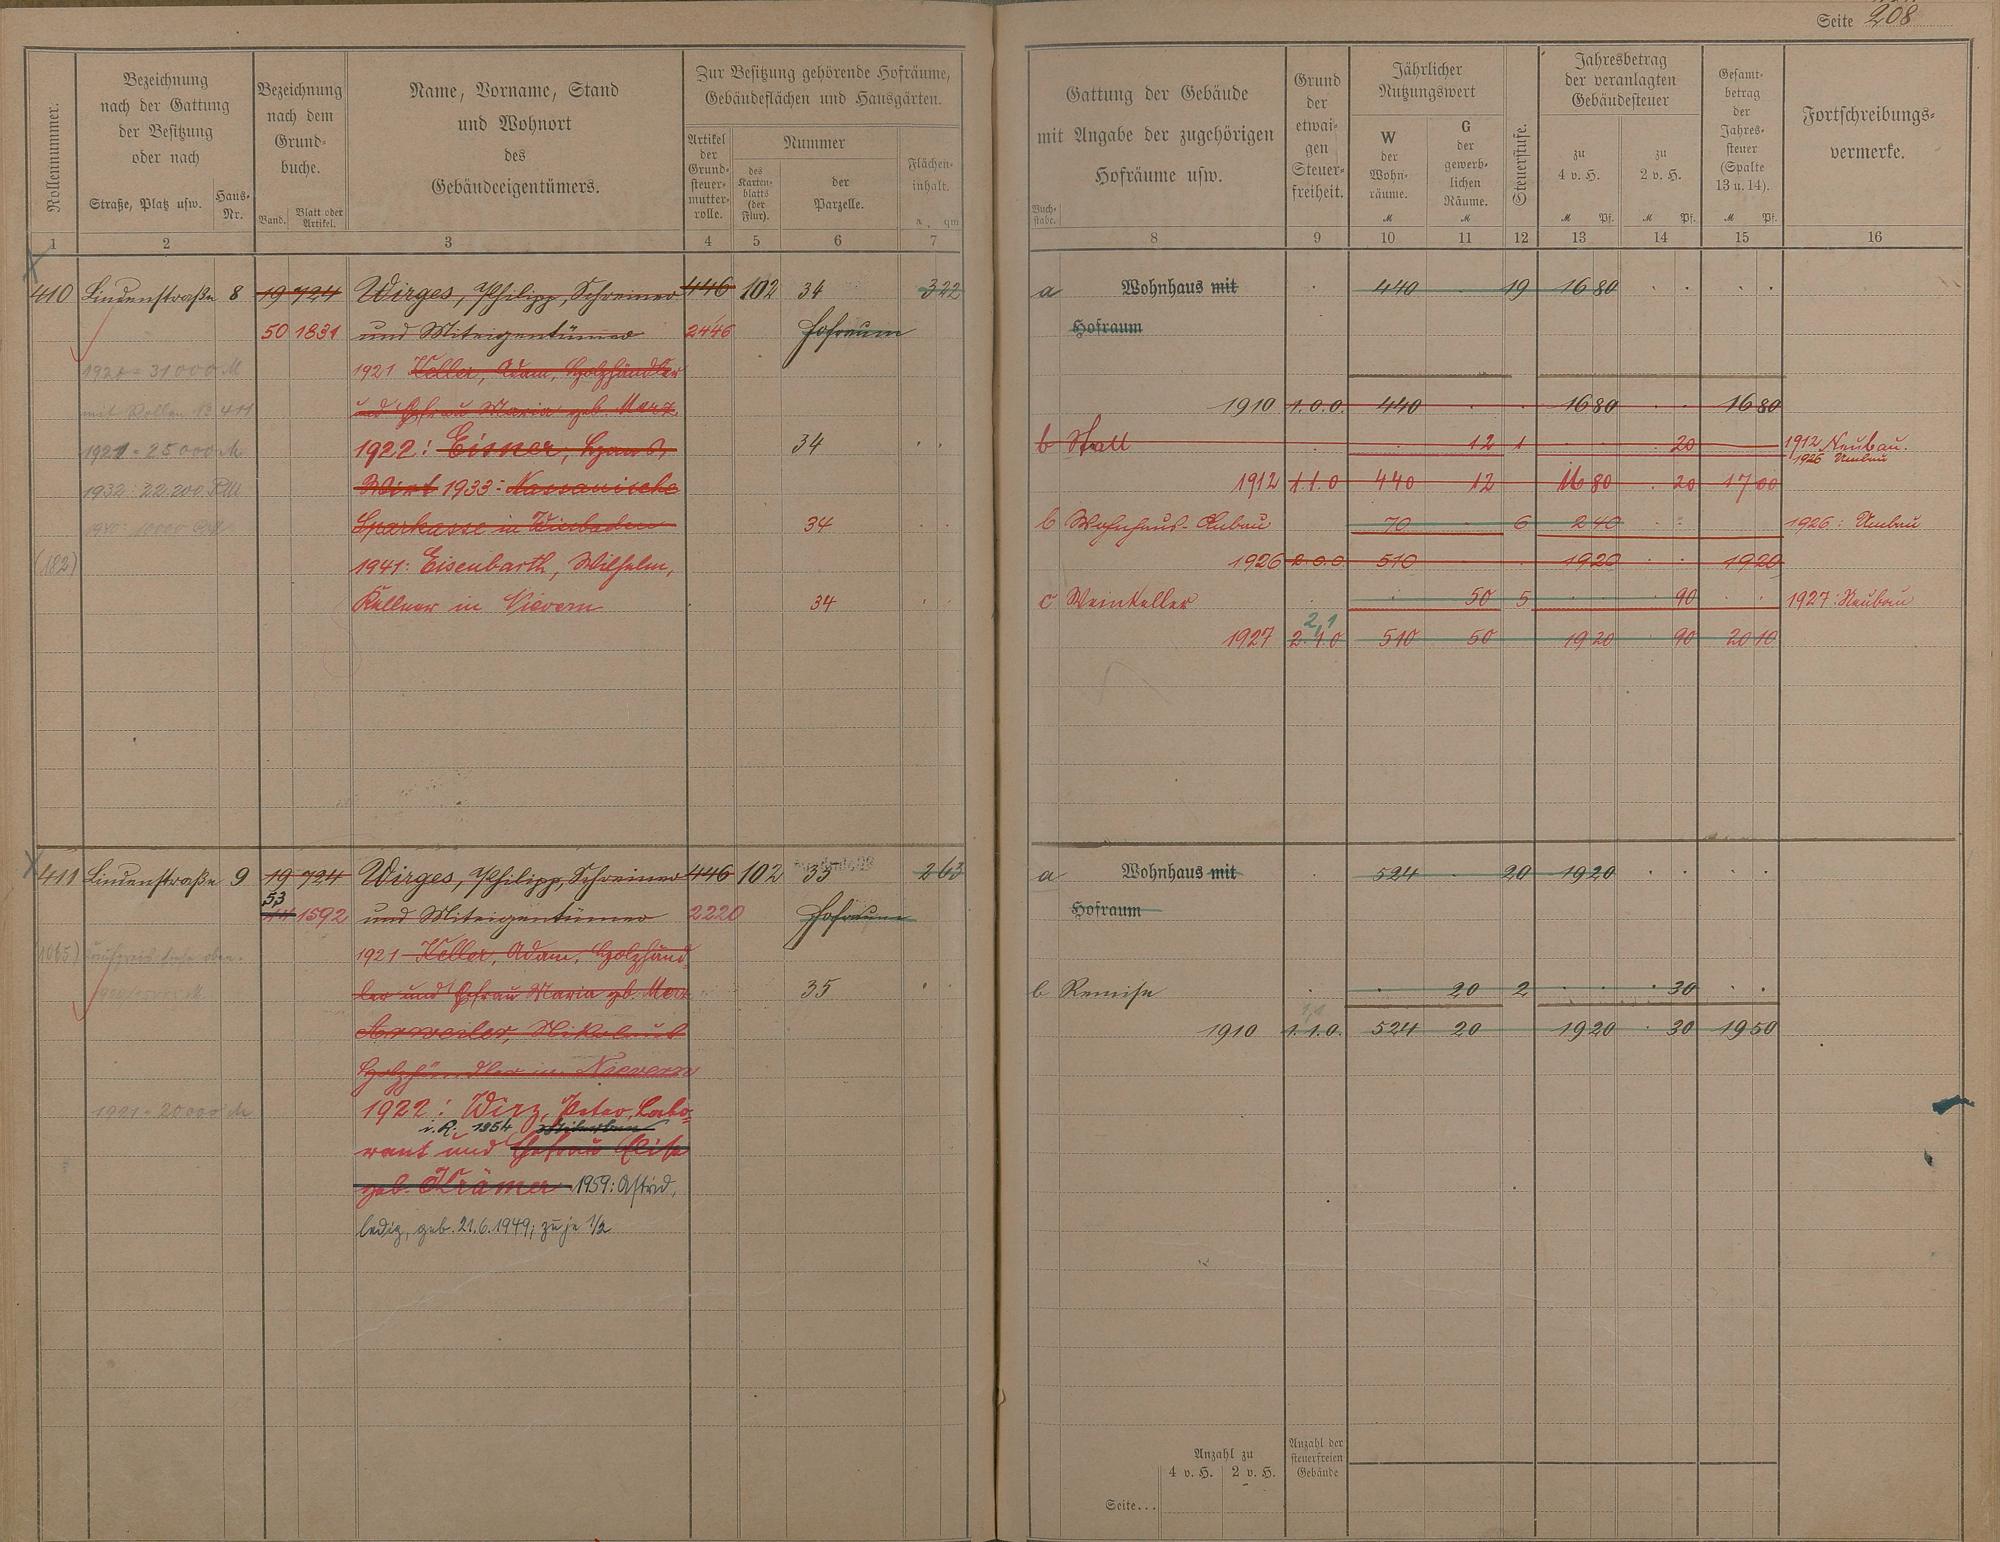 Seite 208
Rollennummer.
Bezeichnung
nach der Gattung
der Besitzung
oder nach
Straße, Platz usw.
Haus-
Nr.
Bezeichnung
nach dem
Grund-
buche.
Band.
Blatt oder
Artikel.
Name, Vorname, Stand
und Wohnort
des
Gebäudeeigentümers.
Zur Besitzung gehörende Hofräume,
Gebäudeflächen und Hausgärten.
Artikel
der
Grund-
steuer-
mutter-
rolle.
Nummer
des
Karten-
blatts
(der
Flur).
der
Parzelle.
Flächen-
inhalt.
a. qm
1 2 3 4 5 6 7
Gattung der Gebäude
mit Angabe der zugehörigen
Hofräume usw.
Buch-
stabe.
Grund
der
etwai-
gen
Steuer-
freiheit.
Jährlicher
Nutzungswert
W
der
Wohn-
räume.
M
G
der
gewerb-
lichen
Räume.
M
Steuerstufe.
Jahresbetrag
der veranlagten
Gebäudesteuer
zu
4 v. H.
M Pf.
zu
2 v. H.
M Pf.
Gesamt-
betrag
der
Jahres-
steuer
(Spalte
13 u. 14).
M Pf.
Fortschreibungs-
vermerke.
8 9 10 11 12 13 14 15 16
410 Lindenstraße 8 19 724 Wirges, Philipp, Schreiner 446 102 34 322
50 1831 und Miteigentümer 2446 Hofraum
= 31000 M 1921 Keller, Adam, Holzhändler
411 und Ehefrau Maria geb. Marx
1921 = 25000 M 1922: Eisner, 34
1932: 22 200 RM Wirt 1933: Nassauische
Sparkasse in Wiesbaden 34
(182) 1941: Eisenbarth, Wilhelm,
Kellner in Nievern 34
a Wohnhaus mit 440 19 16 80
Hofraum
1910 1.0.0. 440 16 80 16 80
b Stall 12 1 20 1912 Neubau.
1926 Umbau
1912 1.1.0 440 12 16 80 20 17 00
b Wohnhaus-Anbau 70 6 2 40 1926: Umbau
1926 2.0.0. 510 19 20 19 20
c Weinkeller 50 5 90 1927: Neubau
2,1
1927 2.1.0 510 50 19 20 90 20 10
411 Lindenstraße 9 19 724 Wirges, Philipp, Schreiner 446 102 263
53
1592 und Miteigentümer 2220 Hofraum
1921 Keller, Adam, Holzhänd-
ler und Ehefrau Maria gb. Marx 35
Arweiler, Nikolaus
Holzhändler in Nievern
1921 = 20000 M 1922: Wirz, Peter, Labo-
i.R. 1954
rant und Ehefrau Elise
geb. Krämer 1959: Astrid,
ledig, geb. 21.6.1949; zu je 1/2
a Wohnhaus mit 524 20 19 20
Hofraum
b Remise 20 2 30
1910 1.1.0. 524 20 19 20 30 19 50
Anzahl zu
4 v. H. 2 v. H.
Anzahl der
steuerfreien
Gebäude
Seite...